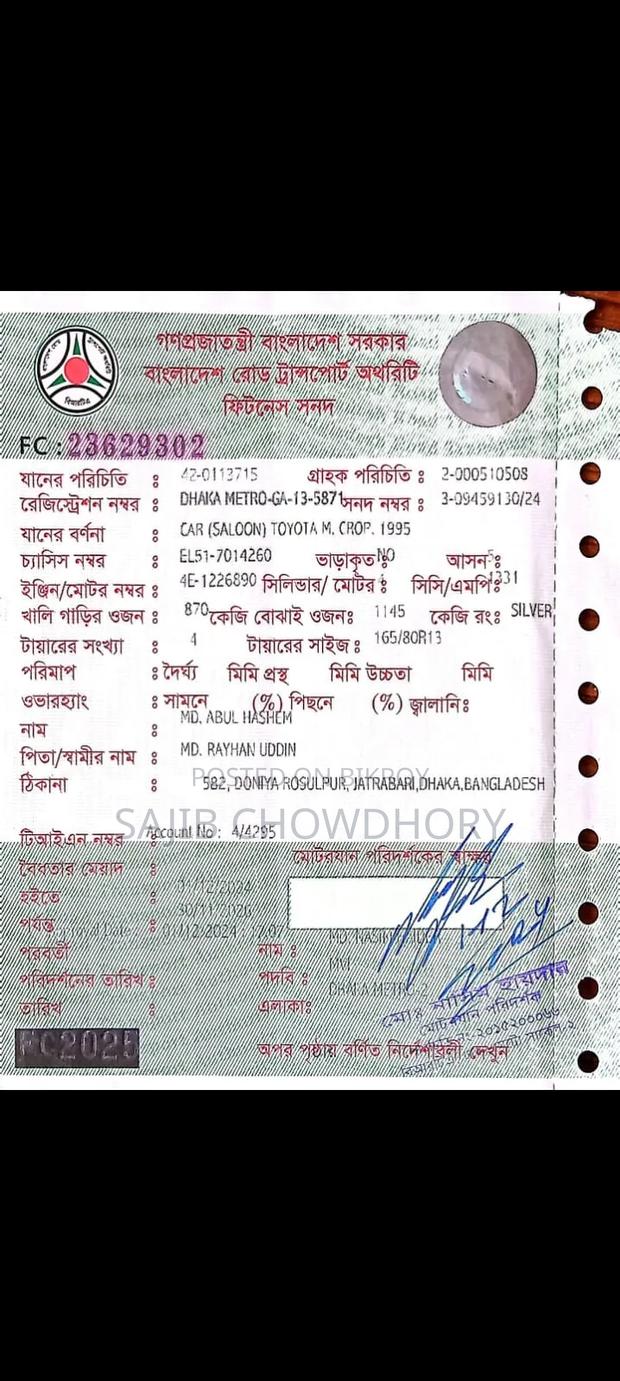 গণপ্রজাতন্ত্রী বাংলাদেশ সরকার
বাংলাদেশ রোড ট্রান্সপোর্ট অথরিটি
ফিটনেস সনদ
বিআরটিএ
FC : 23629302
যানের পরিচিতি : 42-0113715 গ্রাহক পরিচিতি : 2-000510508
রেজিস্ট্রেশন নম্বর : DHAKA METRO-GA-13-5871 সনদ নম্বর : 3-09459130/24
যানের বর্ণনা : CAR (SALOON) TOYOTA M. CROP. 1995
চ্যাসিস নম্বর : EL51-7014260 ভাড়াকৃত NO আসন : 5
ইঞ্জিন/মোটর নম্বর : 4E-1226890 সিলিন্ডার/ মোটর : সিসি/এমপি : 1331
খালি গাড়ির ওজন : 870 কেজি বোঝাই ওজন : 1145 কেজি রং : SILVER
টায়ারের সংখ্যা : 4 টায়ারের সাইজ : 165/80R13
পরিমাপ : দৈর্ঘ্য মিমি প্রস্থ মিমি উচ্চতা মিমি
ওভারহ্যাং : সামনে (%) পিছনে (%) জ্বালানি :
নাম : MD. ABUL HASHEM
পিতা/স্বামীর নাম : MD. RAYHAN UDDIN
ঠিকানা : 582, DONIYA ROSULPUR, JATRABARI,DHAKA,BANGLADESH
POSTED ON BIKROY
SAJIB CHOWDHORY
টিআইএন নম্বর : Account No : 4/4295
বৈধতার মেয়াদ : মোটরযান পরিদর্শকের স্বাক্ষর
হইতে : 01/12/2024
পর্যন্ত : 30/11/2026
Date : 01/12/2024 : 17:07
পরবর্তী নাম :
পরিদর্শনের তারিখ : পদবি : MVI
তারিখ : এলাকা : DHAKA METRO-2
মোঃ নাসিম হায়দার
মোটরযান পরিদর্শক
FC2025
অপর পৃষ্ঠায় বর্ণিত নির্দেশাবলী দেখুন